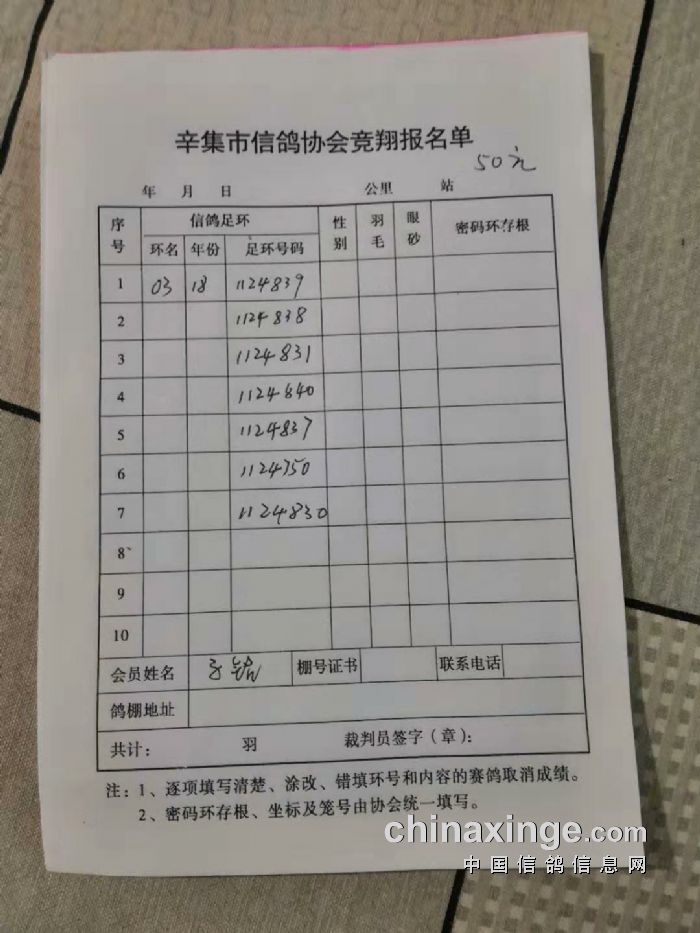 辛集市信鸽协会竞翔报名单
50元
年 月 日 公里 站
序号 信鸽足环 性别 羽毛 眼砂 密码环存根
环名 年份 足环号码
1 03 18 1124839
2 1124838
3 1124831
4 1124840
5 1124837
6 1124750
7 1124830
8
9
10
会员姓名 棚号证书 联系电话
鸽棚地址
共计： 羽 裁判员签字（章）：
注：1、逐项填写清楚、涂改、错填环号和内容的赛鸽取消成绩。
2、密码环存根、坐标及笼号由协会统一填写。
chinaxinge.com
中国信鸽信息网